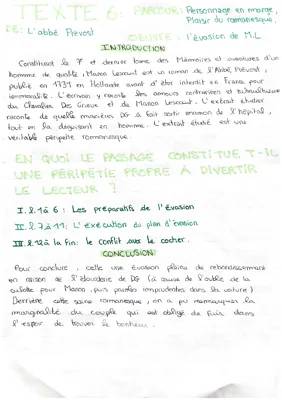 TEXTE 6: PARCOURS: Personnage en marge,
Plaisir du romanesque.
DE: L'abbé Prévost
OBJET: l'évasion de M.L
INTRODUCTION
Constituant le 7e et dernier tome des Mémoires et aventures d'un
homme de qualité, Manon Lescaut est un roman de l'Abbé Prévost,
publié en 1731 en Hollande avant d'être interdit en France pour
immoralité. L'écrivain y raconte les amours contrariées et tumultueuses
du Chevalier Des Grieux et de Manon Lescaut. L'extrait étudié
raconte de quelle manière DG a fait sortir manon de l'hôpital,
tout en la déguisant en homme. L'extrait étudié est une
véritable péripétie romanesque
EN QUOI LE PASSAGE CONSTITUE T-IL
UNE PÉRIPÉTIE PROPRE A DIVERTIR
LE LECTEUR ?
I. l. 1 à 6 : Les préparatifs de l'évasion
II. l. 7 à 11 : L'exécution du plan d'évasion
III. l. 12 à la fin : le conflit avec le cocher.
CONCLUSION
Pour conclure, cette une évasion pleine de rebondissement
en raison de l'étourderie de DG (à cause de l'oubli de la
culotte pour Manon, puis paroles imprudentes dans la voiture)
Derrière cette scène romanesque, on a pu remarquer la
marginalité du couple qui est obligé de fuir dans
l'espoir de trouver le bonheur.